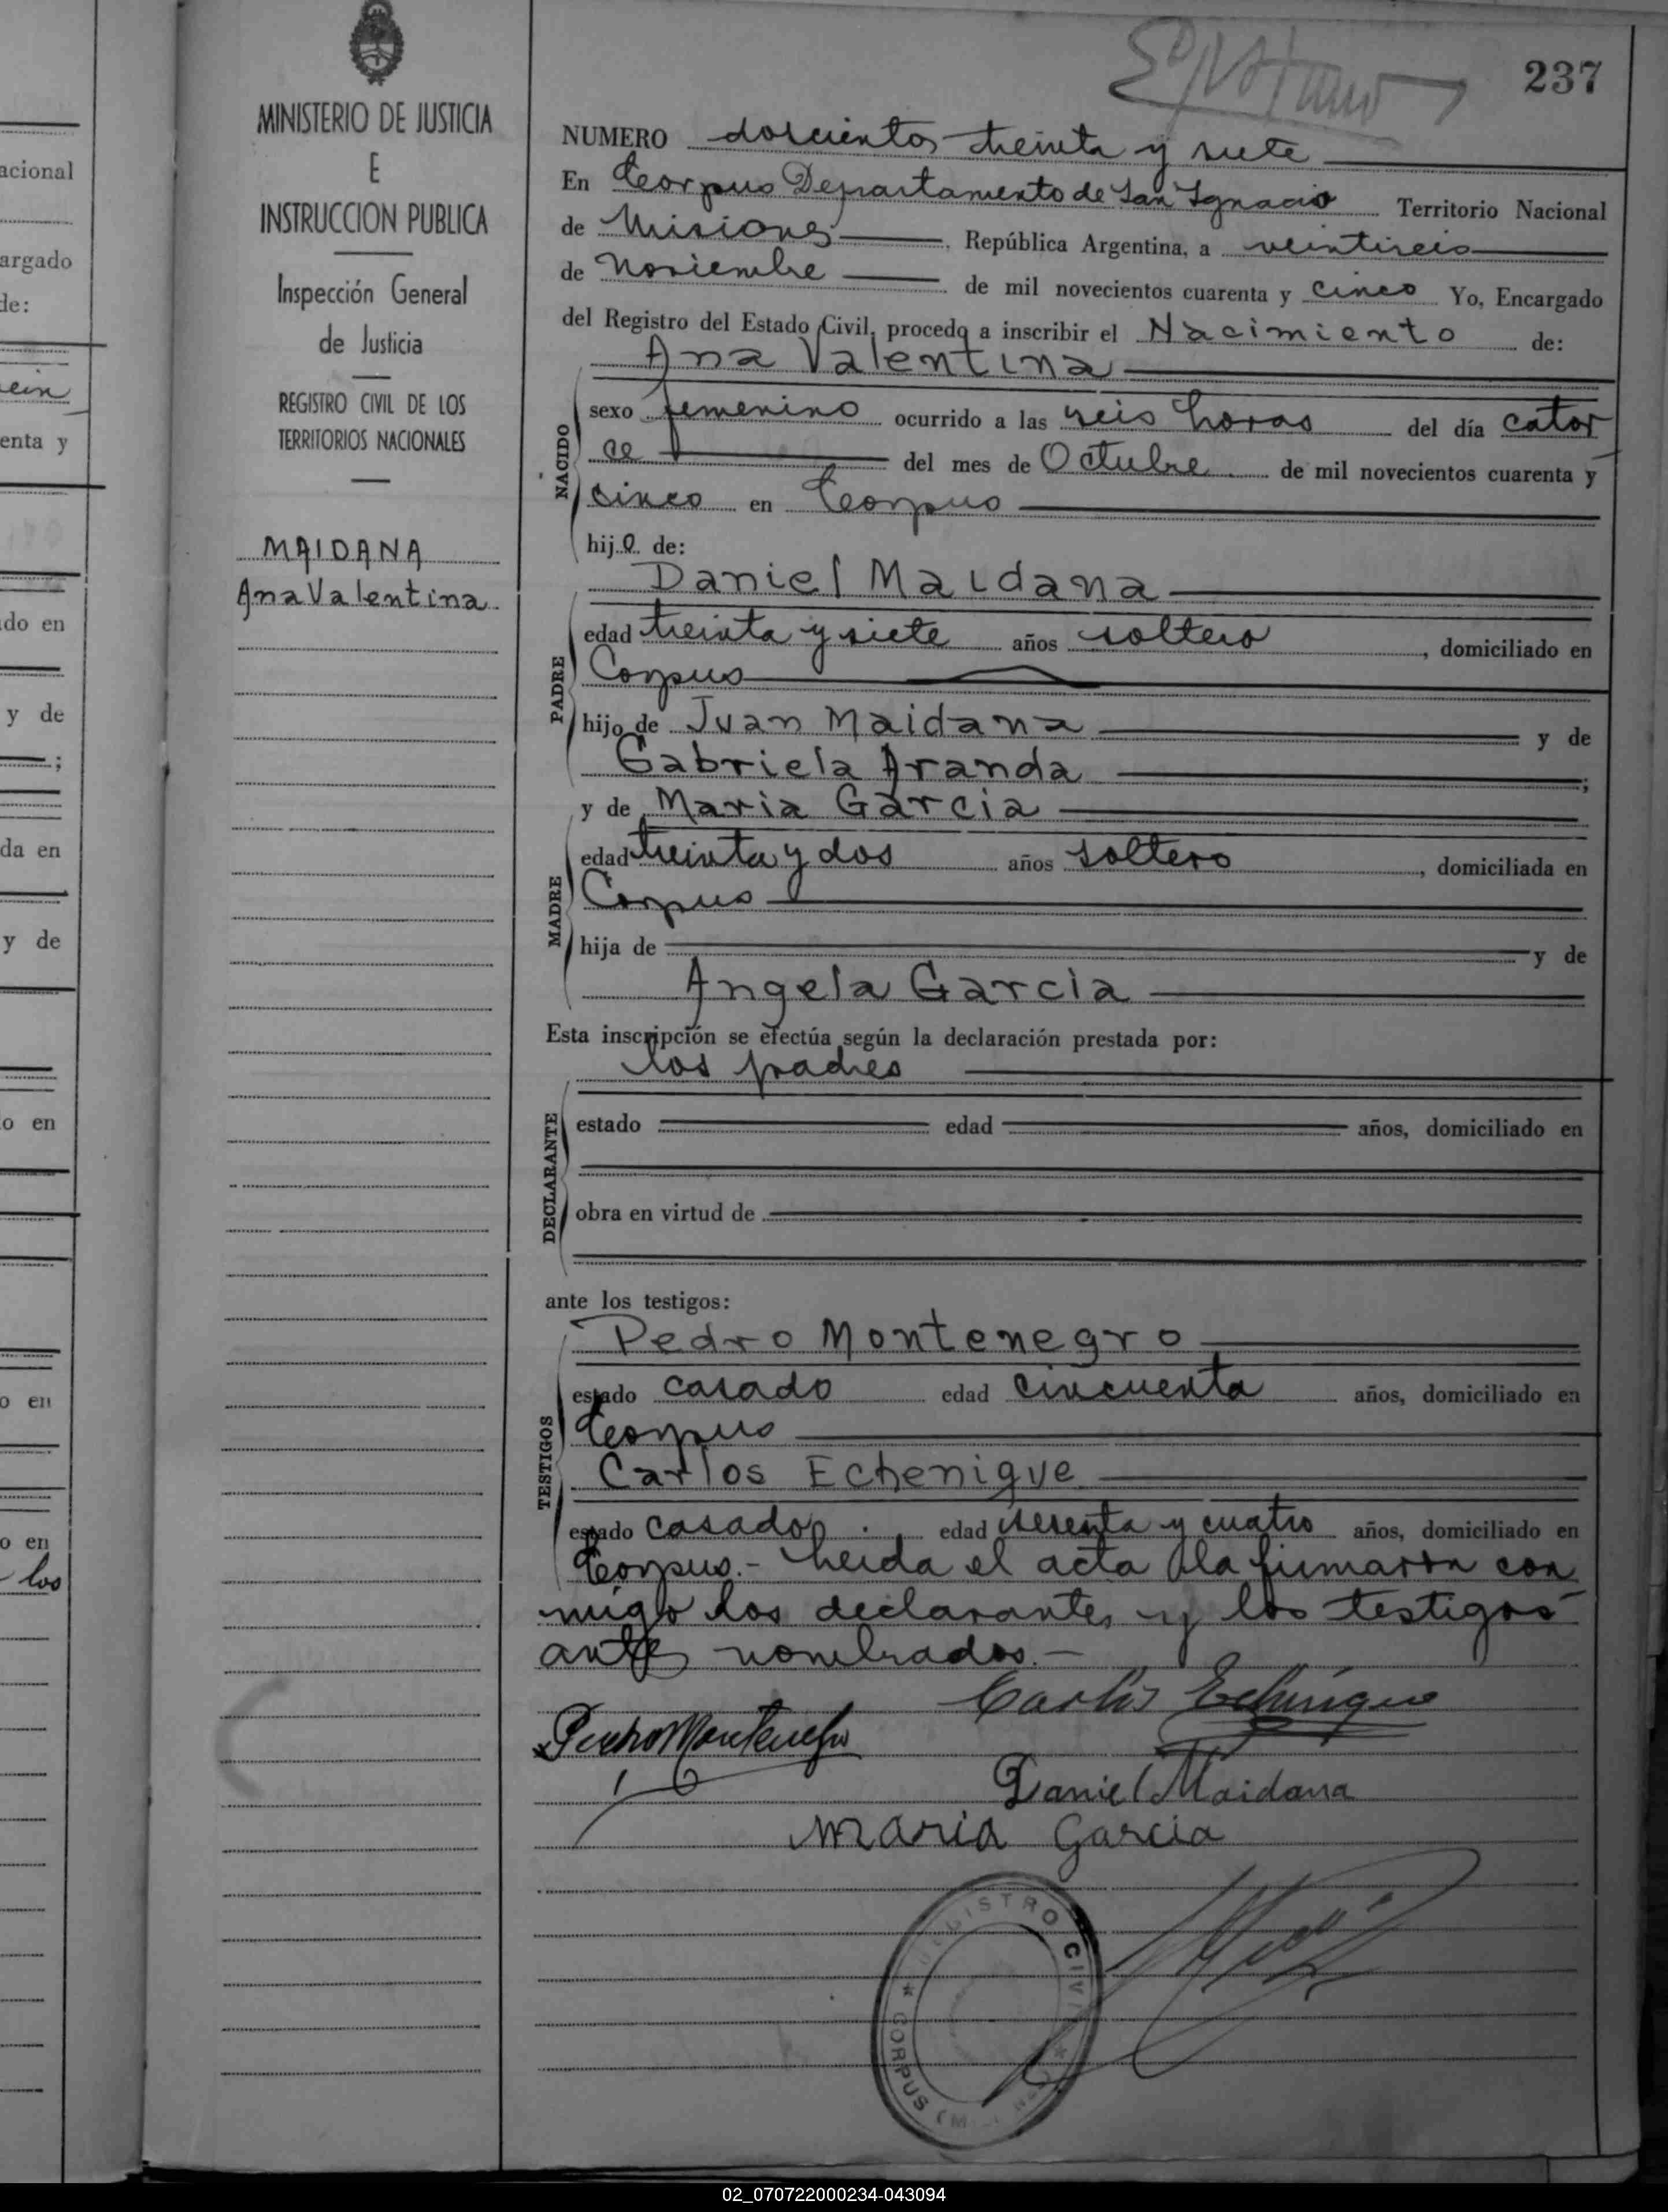 acional
argado
de:
enta y
do en
y de
;
da en
y de
o en
o en
o en
los
MINISTERIO DE JUSTICIA
E
INSTRUCCION PUBLICA
Inspección General
de Justicia
REGISTRO CIVIL DE LOS
TERRITORIOS NACIONALES
MAIDANA
Ana Valentina
237
NUMERO doscientos treinta y siete
En Corpus Departamento de San Ignacio Territorio Nacional
de Misiones, República Argentina, a veintiseis
de Noviembre de mil novecientos cuarenta y cinco Yo, Encargado
del Registro del Estado Civil, procedo a inscribir el Nacimiento de:
Ana Valentina
NACIDO
sexo femenino ocurrido a las seis horas del día cator
ce del mes de Octubre de mil novecientos cuarenta y
cinco en Corpus
hija de:
Daniel Maidana
PADRE
edad treinta y siete años soltero, domiciliado en
Corpus
hijo de Juan Maidana y de
Gabriela Aranda;
y de Maria Garcia
MADRE
edad treinta y dos años soltero, domiciliada en
Corpus
hija de y de
Angela Garcia
Esta inscripción se efectúa según la declaración prestada por:
los padres
DECLARANTE
estado edad años, domiciliado en
obra en virtud de
ante los testigos:
Pedro Montenegro
TESTIGOS
estado casado edad cincuenta años, domiciliado en
Corpus
Carlos Echenique
estado casado edad sesenta y cuatro años, domiciliado en
Corpus.- Leida el acta la firmaron con
migo los declarantes y los testigos
antes nombrados.-
Carlos Echenique
Pedro Montenegro
Daniel Maidana
Maria Garcia
REGISTRO CIVIL * CORPUS
02_070722000234-043094